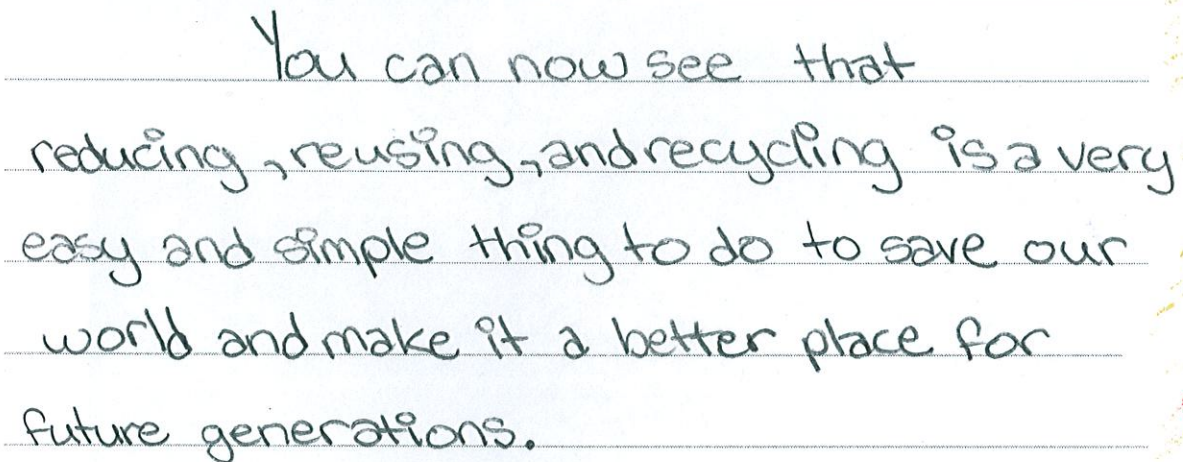 You can now see that
reducing, reusing, and recycling is a very
easy and simple thing to do to save our
world and make it a better place for
future generations.